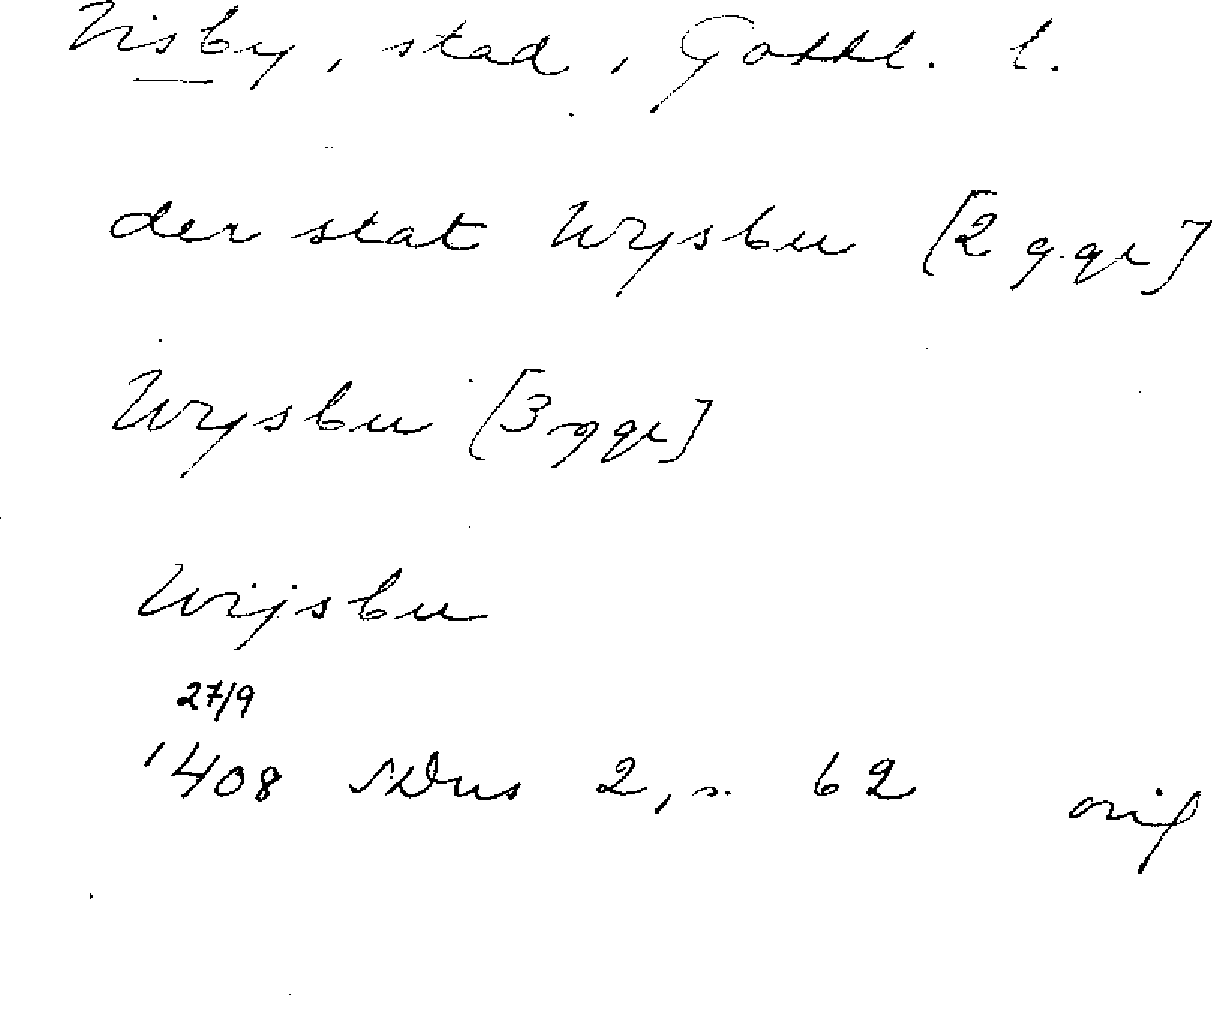 Visby, stad, Gottl. l.
der stat Wysbu [2 ggr]
Wysbu [3 ggr]
Wijsbu
27/9
1408 SDns 2, s. 62 orig